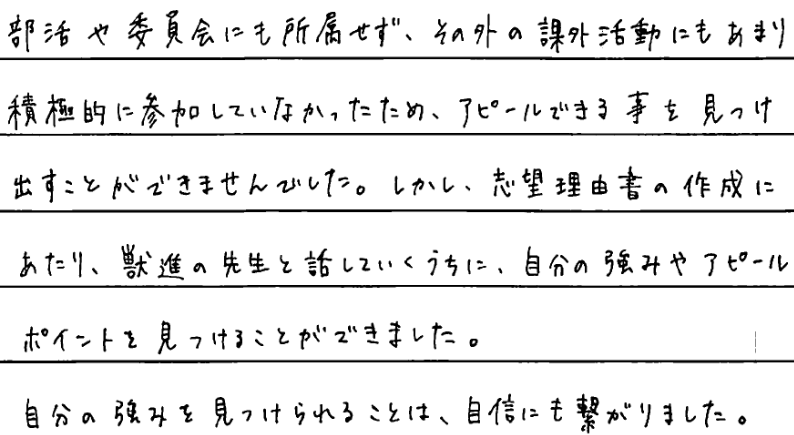 部活や委員会にも所属せず、その外の課外活動にもあまり
積極的に参加していなかったため、アピールできる事を見つけ
出すことができませんでした。しかし、志望理由書の作成に
あたり、獣進の先生と話していくうちに、自分の強みやアピール
ポイントを見つけることができました。
自分の強みを見つけられることは、自信にも繋がりました。